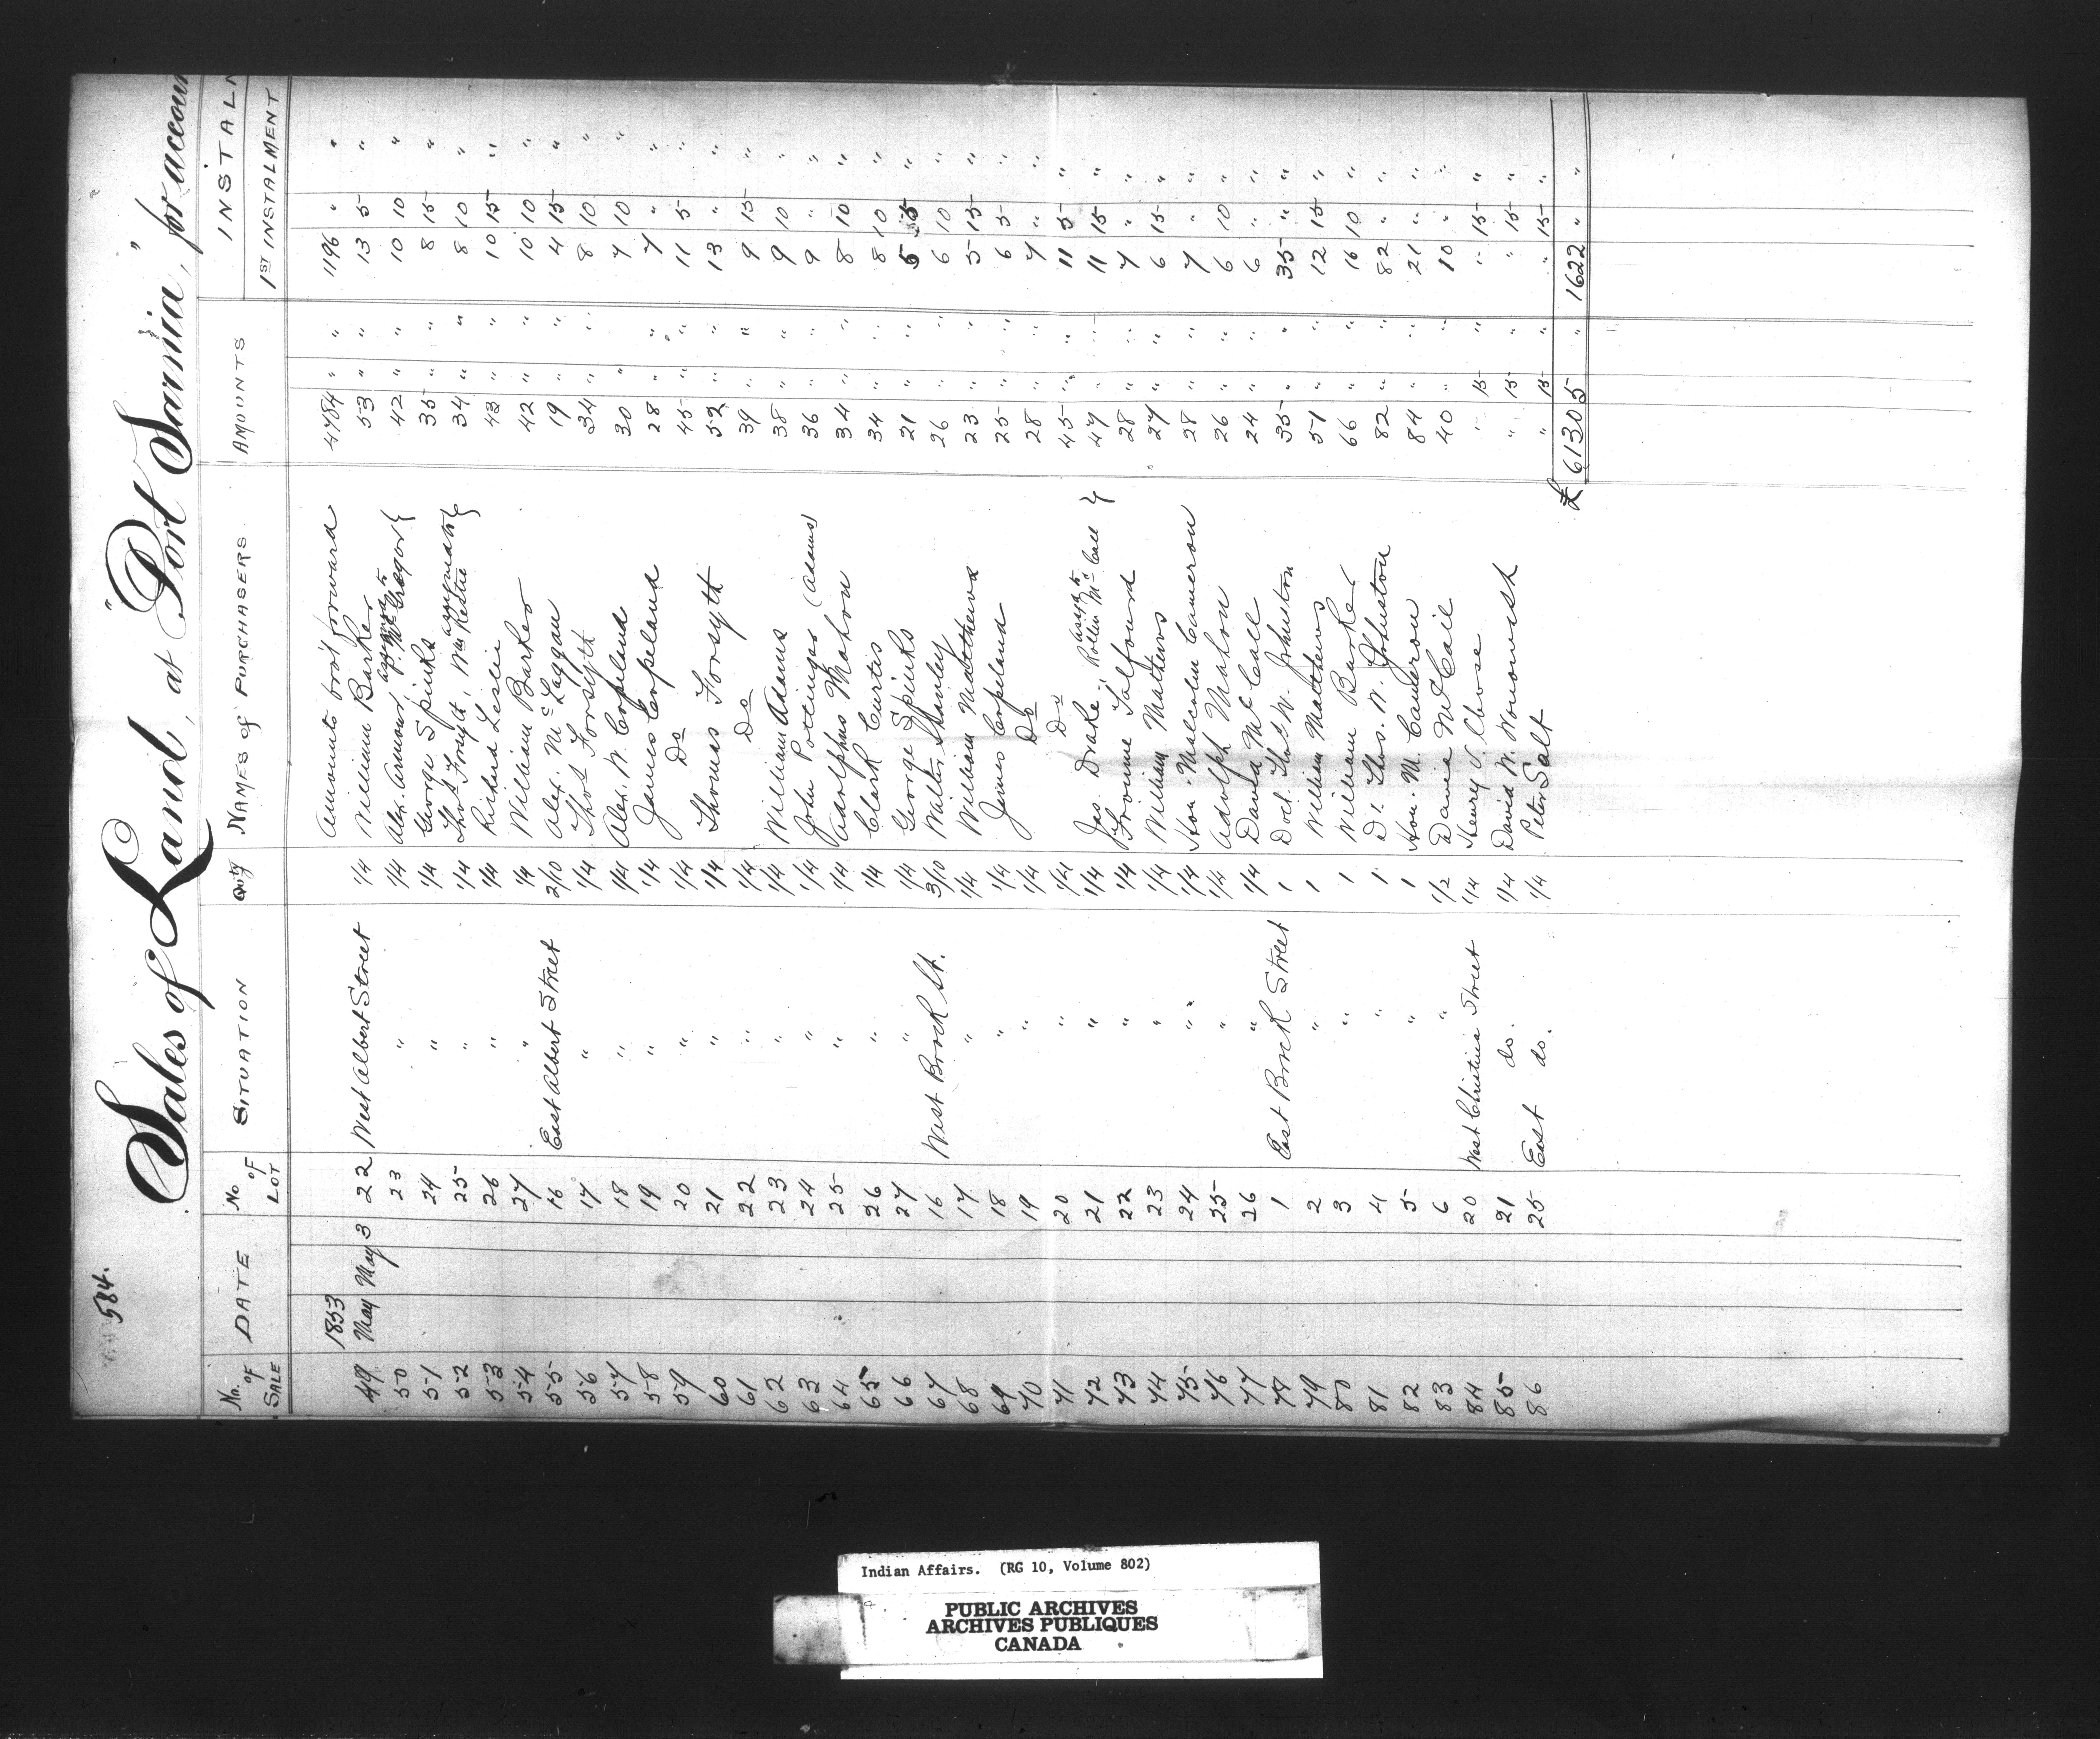 584.
Sales of Land, at "Port Sarnia," for accoun
No. of SALE DATE No of LOT SITUATION Qnty NAMES of PURCHASERS AMOUNTS INSTALM
1ST INSTALMENT
1853 Amounts bro't forward 4784 " " 1196 " "
49 May May 3 22 West Albert Street 1/4 William Barker 53 " " 13 5 "
50 23 " 1/4 Alex. Armour, assigned to P. McGregor } 42 " " 10 10 "
51 24 " 1/4 George Spinks 35 " " 8 15 "
52 25 " 1/4 Thos Forsyth, assigned to Wm Restie } 34 " " 8 10 "
53 26 " 1/4 Richard Leslie 43 " " 10 15 "
54 27 " 1/4 William Barker 42 " " 10 10 "
55 16 East Albert Street 2/10 Alex. McLaggan 19 " " 4 15 "
56 17 " 1/4 Thos Forsyth 34 " " 8 10 "
57 18 " 1/4 Alex. W. Copeland 30 " 7 10 "
58 19 " 1/4 James Copeland 28 " " 7 " "
59 20 " 1/4 Do 45 " " 11 5 "
60 21 " 1/4 Thomas Forsyth 52 " " 13 " "
61 22 " 1/4 Do 39 " " 9 15 "
62 23 " 1/4 William Adams 38 " " 9 10 "
63 24 " 1/4 John Pottinger (Adams) 36 " " 9 " "
64 25 " 1/4 Adolphus Mahon 34 " " 8 10 "
65 26 " 1/4 Clark Curtis 34 " " 8 10 "
66 27 " 1/4 George Spinks 21 " " 5 5 "
67 16 West Brock St. 3/10 Walter Shanley 26 " " 6 10 "
68 17 " 1/4 William Matthews 23 " " 5 15 "
69 18 " 1/4 James Copeland 25 " " 6 5 "
70 19 " 1/4 Do 28 " " 7 " "
71 20 " 1/4 Do 45 " " 11 5 "
72 21 " 1/4 Jas. Drake, assigd to Rollin McCall } 47 " " 11 15 "
73 22 " 1/4 Froome Talfourd 28 " " 7 " "
74 23 " 1/4 William Mathews 27 " " 6 15 "
75 24 " 1/4 Hon. Malcolm Cameron 28 " " 7 " "
76 25 " 1/4 Adolph Mahon 26 " " 6 10 "
77 26 " 1/4 David McCall 24 " " 6 " "
78 1 East Brock Street 1 Doct. Thos W. Johnston 35 " " 35 " "
79 2 " 1 William Matthews 51 " " 12 15 "
80 3 " 1 William Barker 66 " " 16 10 "
81 4 " 1 Dr. Thos. W. Johnston 82 " " 82 " "
82 5 " 1 Hon. M. Cameron 84 " " 21 " "
83 6 " 1/2 David McCall 40 " " 10 " "
84 20 West Christina Street 1/4 Henry J. Chose " 15 " " 15 "
85 21 do. 1/4 David W. " 15 " " 15 "
86 25 East do. 1/4 Peter Salt " 15 " " 15 "
£ 6130 5 " 1622 " "
Indian Affairs. (RG 10, Volume 802)
PUBLIC ARCHIVES
ARCHIVES PUBLIQUES
CANADA